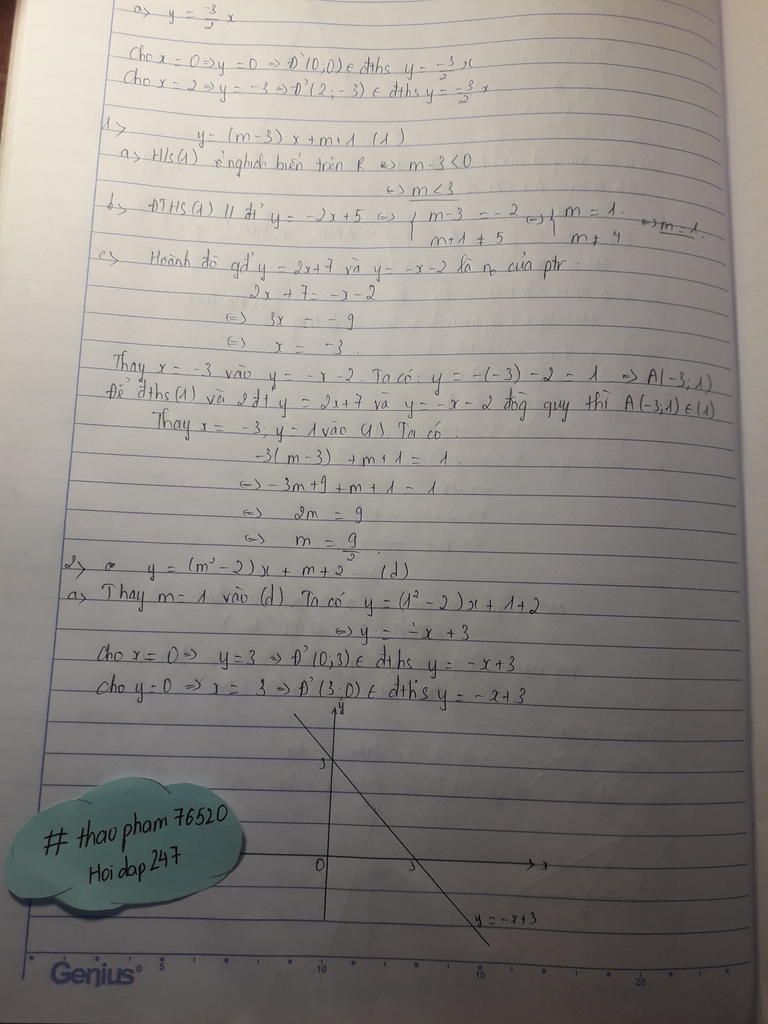 a> y = -3/2 x
Cho x = 0 => y = 0 => Đ'(0;0) ∈ đths y = -3/2 x
Cho x = 2 => y = -3 => Đ'(2;-3) ∈ đths y = -3/2 x
1> y = (m-3)x + m+1 (1)
a> H/s(1) nghịch biến trên R <=> m-3 < 0
<=> m < 3
b> ĐTHS(1) // đt' y = -2x+5 <=> { m-3 = -2 <=> { m = 1. <=> m = 1.
m+1 ≠ 5 m ≠ 4
c> Hoành độ gđ' y = 2x+7 và y = -x-2 là no của ptr:
2x + 7 = -x-2
<=> 3x = -9
<=> x = -3
Thay x = -3 vào y = -x-2. Ta có: y = -(-3) - 2 = 1 => A(-3;1)
Để đths(1) và 2đt y = 2x+7 và y = -x-2 đồng quy thì A(-3;1) ∈ (1)
Thay x = -3; y = 1 vào (1) Ta có:
-3(m-3) + m+1 = 1
<=> -3m+9 + m + 1 = 1
<=> 2m = 9
<=> m = 9/2
2> y = (m²-2)x + m+2 (d)
a> Thay m = 1 vào (d). Ta có: y = (1²-2)x + 1+2
<=> y = -x + 3
Cho x = 0 => y = 3 => Đ'(0;3) ∈ đths y = -x+3
Cho y = 0 => x = 3 => Đ'(3;0) ∈ đths y = -x+3
y
3
0 3 x
y = -x+3
# thaopham76520
Hoidap247
Genius®
5 10 15 20